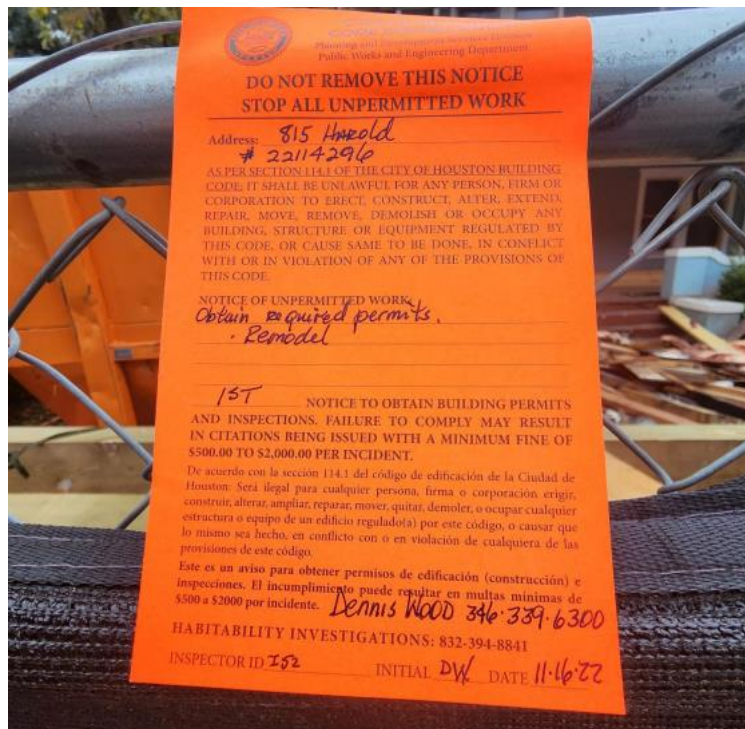 Planning and Development Services Division
Public Works and Engineering Department
DO NOT REMOVE THIS NOTICE
STOP ALL UNPERMITTED WORK
Address: 815 Harold
# 22114296
AS PER SECTION 114.1 OF THE CITY OF HOUSTON BUILDING
CODE; IT SHALL BE UNLAWFUL FOR ANY PERSON, FIRM OR
CORPORATION TO ERECT, CONSTRUCT, ALTER, EXTEND,
REPAIR, MOVE, REMOVE, DEMOLISH OR OCCUPY ANY
BUILDING, STRUCTURE OR EQUIPMENT REGULATED BY
THIS CODE, OR CAUSE SAME TO BE DONE, IN CONFLICT
WITH OR IN VIOLATION OF ANY OF THE PROVISIONS OF
THIS CODE.
NOTICE OF UNPERMITTED WORK
Obtain required permits.
· Remodel
1ST NOTICE TO OBTAIN BUILDING PERMITS
AND INSPECTIONS. FAILURE TO COMPLY MAY RESULT
IN CITATIONS BEING ISSUED WITH A MINIMUM FINE OF
$500.00 TO $2,000.00 PER INCIDENT.
De acuerdo con la sección 114.1 del código de edificación de la Ciudad de
Houston: Será ilegal para cualquier persona, firma o corporación erigir,
construir, alterar, ampliar, reparar, mover, quitar, demoler, o ocupar cualquier
estructura o equipo de un edificio regulado(a) por este código, o causar que
lo mismo sea hecho, en conflicto con o en violación de cualquiera de las
provisiones de este código.
Este es un aviso para obtener permisos de edificación (construcción) e
inspecciones. El incumplimiento puede resultar en multas mínimas de
$500 a $2000 por incidente. Dennis Wood 346·339·6300
HABITABILITY INVESTIGATIONS: 832-394-8841
INSPECTOR ID I52 INITIAL DW DATE 11·16·22